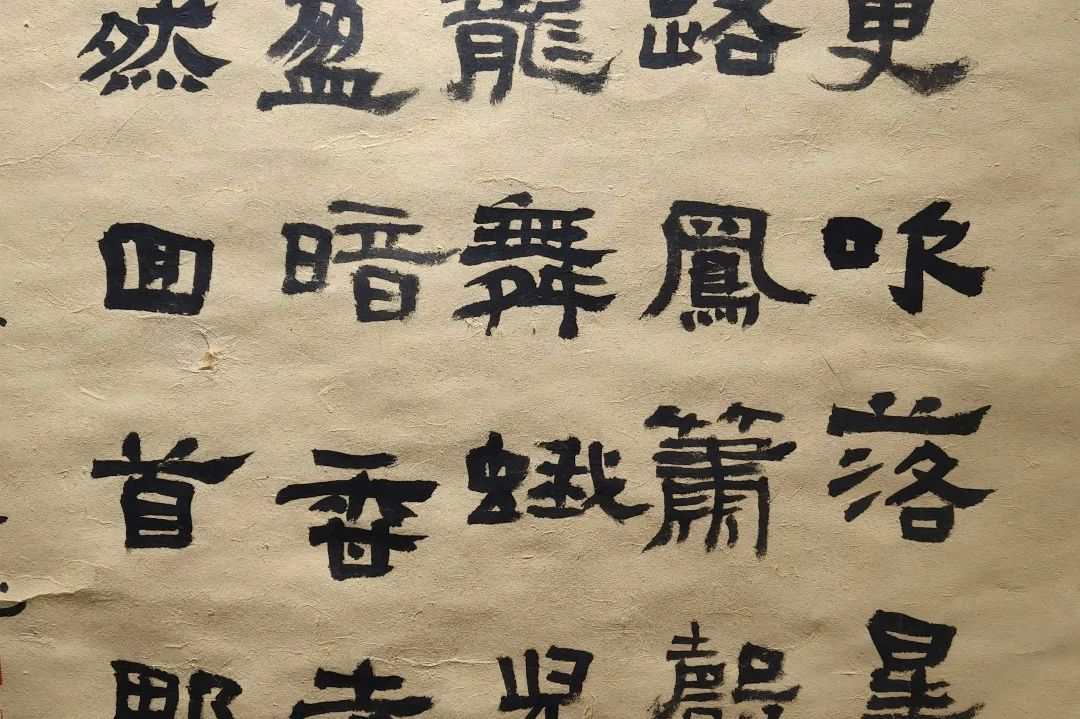 更吹落星
路鳳簫聲
龍舞蛾兒
盈暗香去
然回首那